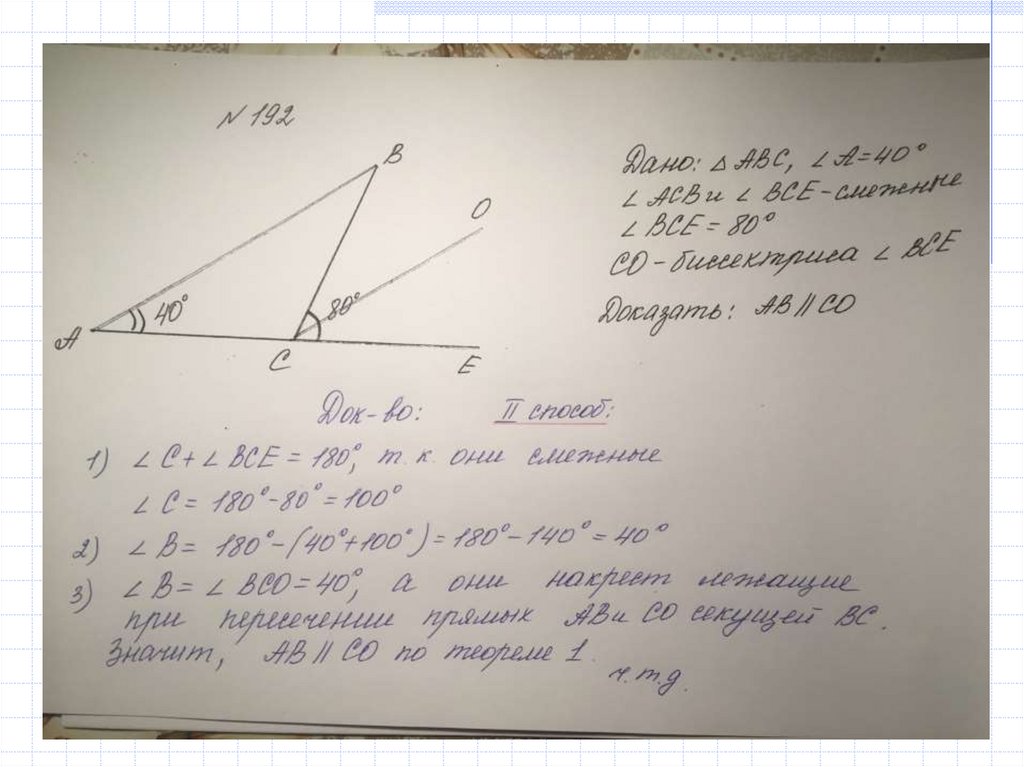 N 192
B
O
40°
80°
A
C
E
Дано: △ ABC, ∠ A=40°
∠ ACB и ∠ BCE-смежные
∠ BCE = 80°
CO-биссектриса ∠ BCE
Доказать: AB || CO
Док-во: II способ:
1) ∠ C + ∠ BCE = 180°, т. к. они смежные
∠ C = 180°-80° = 100°
2) ∠ B = 180°-(40°+100°) = 180°-140° = 40°
3) ∠ B = ∠ BCO = 40°, а они накрест лежащие
при пересечении прямых AB и CO секущей BC.
Значит, AB || CO по теореме 1.
ч.т.д.